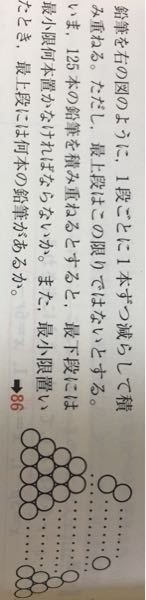 鉛筆を右の図のように，1段ごとに1本ずつ減らして積
み重ねる。ただし，最上段はこの限りではないとする。
いま，125本の鉛筆を積み重ねるとすると，最下段には
最小限何本置かなければならないか。また，最小限置い
たとき，最上段には何本の鉛筆があるか。 ➡86